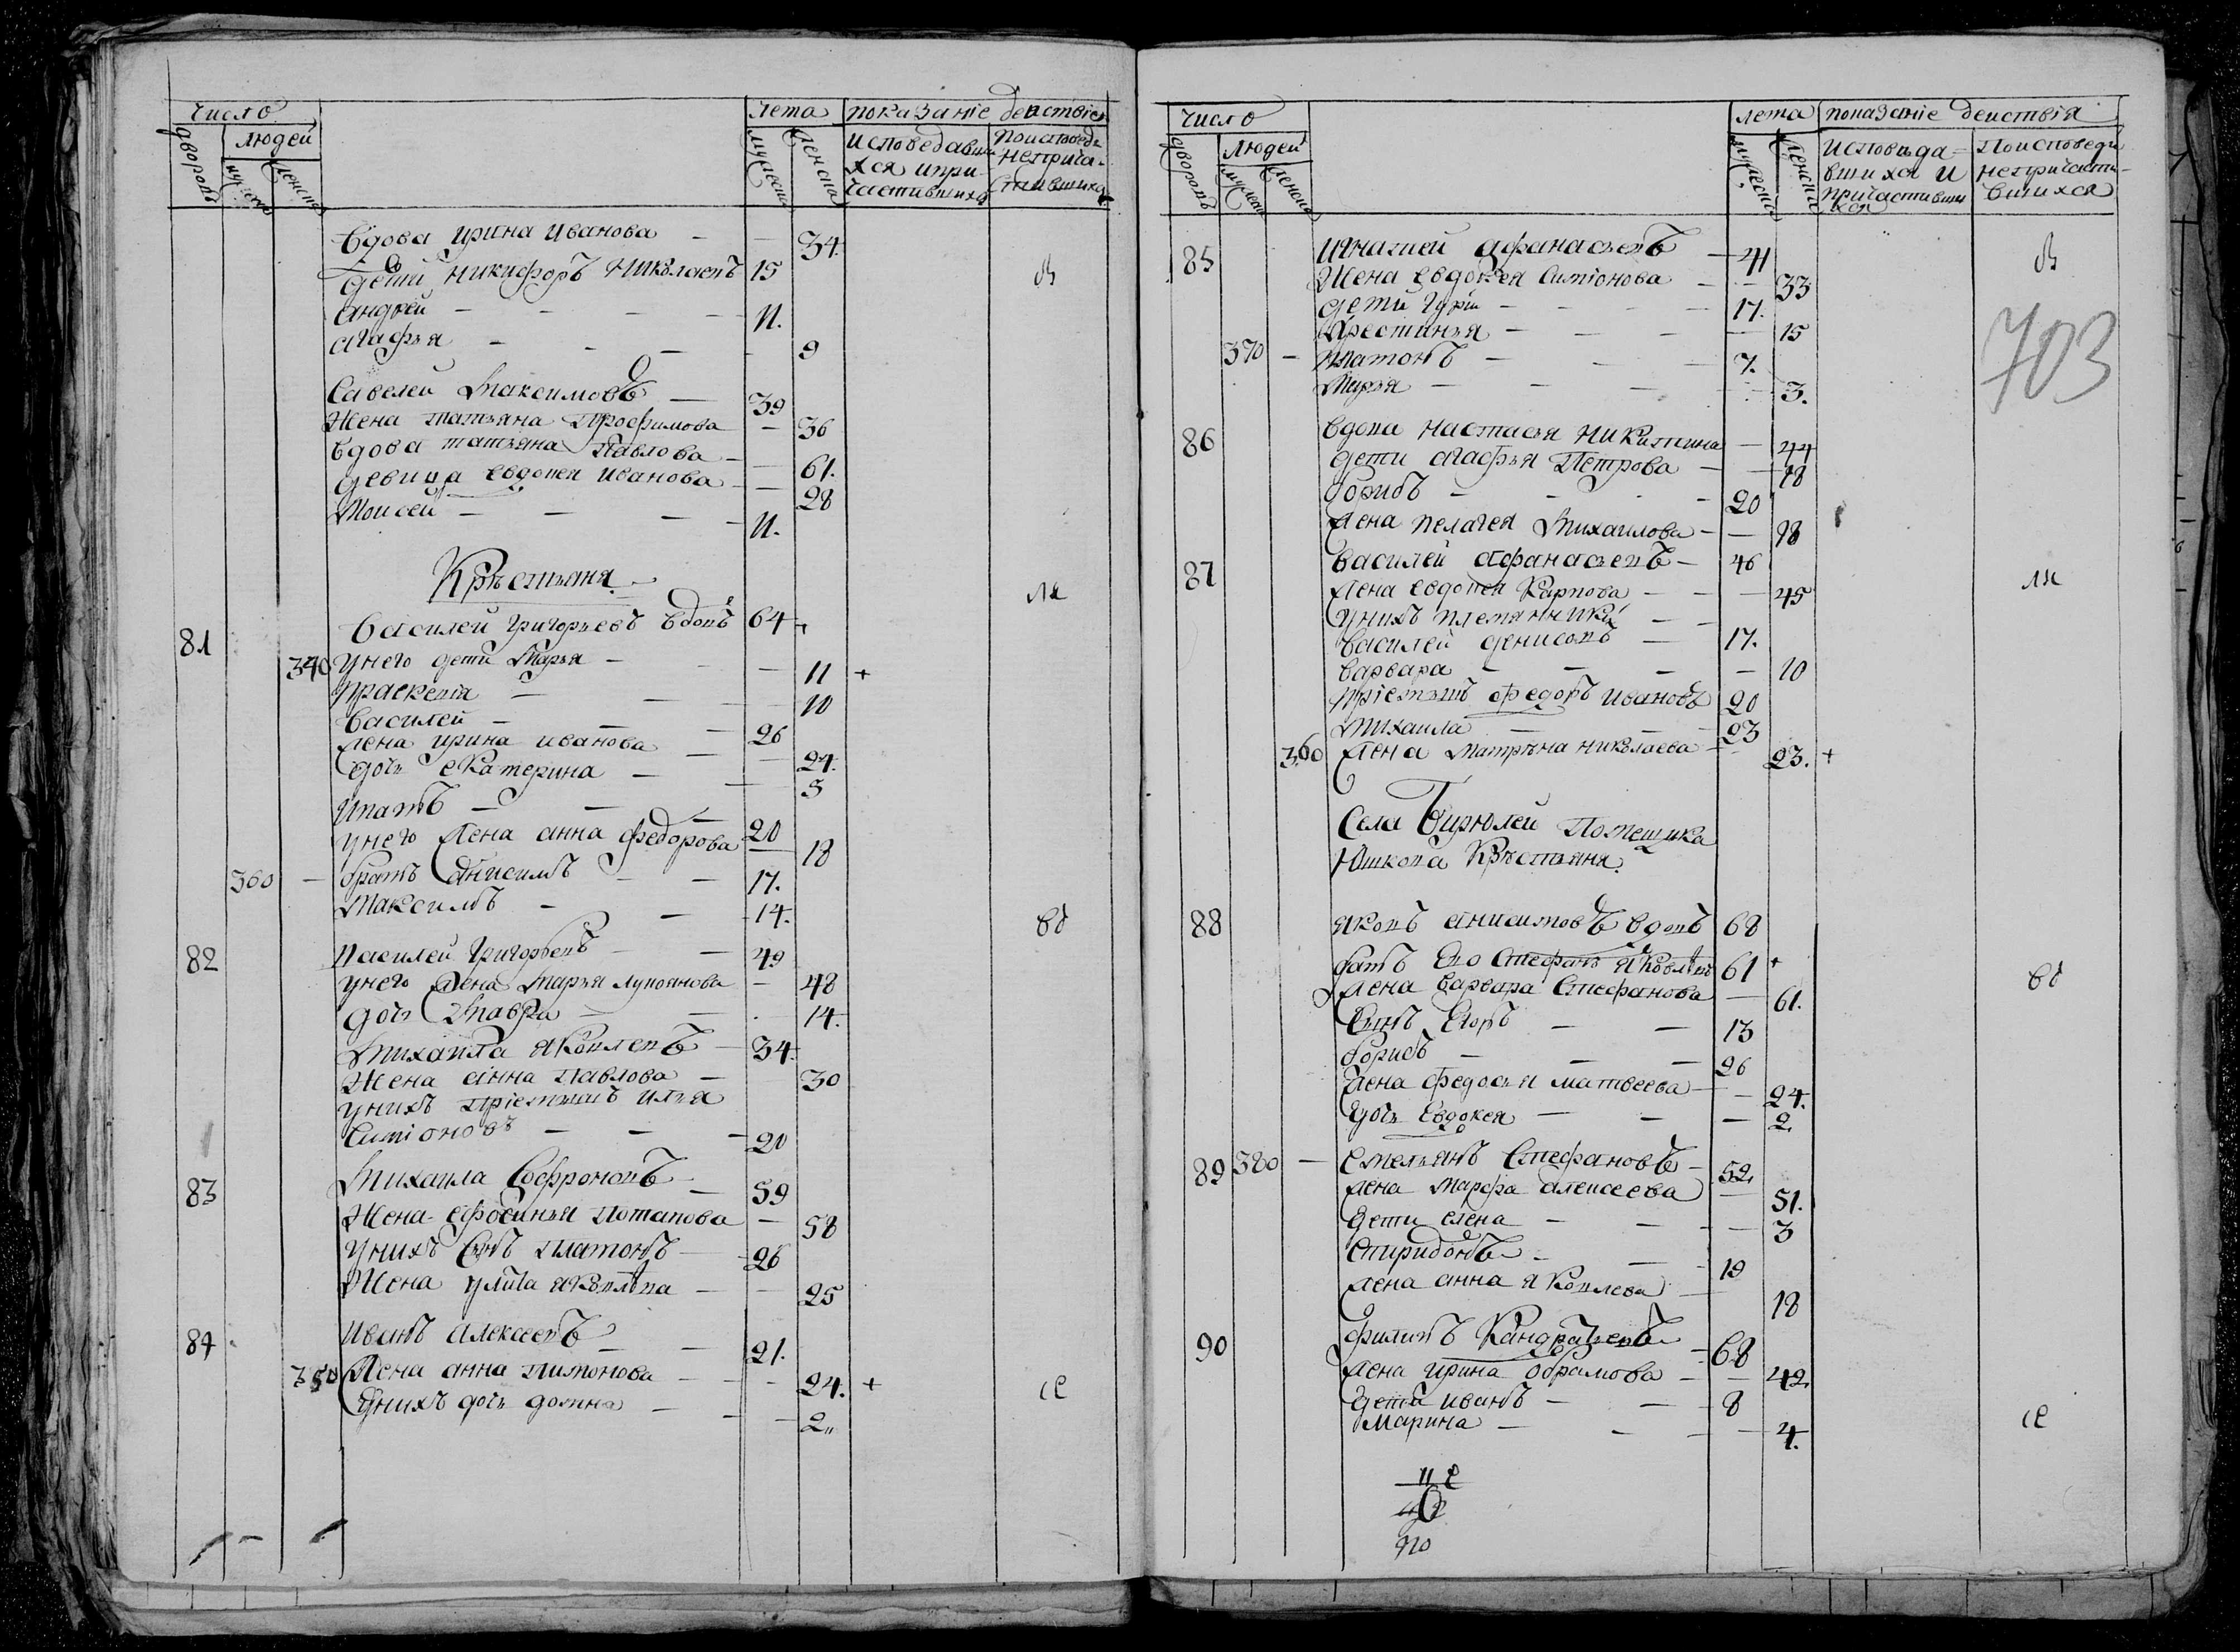 число
лета показание действие
дворовъ
людей
мужеска
женска
мужеска
женска
исповедавши
хся и при
частившихся
По исповеди
неприча
стившихся
вдова ирина иванова — — 34.
дети никифоръ николаевъ 15
андрей — 11.
агафья — 9
Савелей Максимовъ — 39
жена татьяна Трофимова — 36
вдова татьяна Павлова — 61.
девица евдокея иванова — 28
Моисей — 11.
Крестьяня
81 василей григорьевъ вдовъ 64
340 у него дети Марья — 11 +
Праскевiя — 10
василей — 26
жена ирина иванова — 24.
дочь екатерина — 5
ипатъ — 20
у него жена анна федорова — 18
360 — братъ анисимъ — 17.
Максимъ — 14.
82 василей григорьевъ — 49
у него жена марья лукоянова — 48
дочь Мавра — 14.
михаила яковлевъ — 34.
жена анна павлова — 30
у нихъ прiемышъ илья
Симiоновъ — 20
83 Михаила Софроновъ — 59
жена ефросинья потапова — 58
у нихъ сынъ платонъ — 26
жена улита яковлева — 25
84 иванъ алексеевъ — 21.
350 жена анна пимонова — 24. +
у нихъ дочь домна — 2
число
лета показание действия
дворовъ
людей
мужеска
женска
мужеска
женска
исповеда
вшихся и
причастивши
хся
По исповеди
непричасти
вшихся
703
85 игнатей афанасьевъ — 41
жена евдокея Симiонова — 33
дети гурiй — 17.
Крестинья — 15
370 — платонъ — 7.
Марья — 3.
86 вдова настасья никитина — 44
дети агафья Петрова — 18
борисъ — 20
жена пелагея Михаилова — 18
87 василей афанасьевъ — 46
жена евдокея Карпова — 45
у нихъ племянники
василей денисовъ — 17.
варвара — 10
прiемышъ федоръ ивановъ 20
михаила — 23
360 жена матрена николаева — 23. +
Села Бирюлей Помещика
Юшкова Крестьяня
88 яковъ анисимовъ вдовъ 68
братъ его Стефанъ яковлевъ 61 +
жена варвара Стефанова — 61.
сынъ егоръ — 13
борисъ — 26
жена федосья матвеева — 24.
дочь евдокея — 2
89 380 — емельянъ Стефановъ — 52.
жена марфа алексеева — 51.
дети елена — 3
спиридонъ — 19
жена анна яковлева — 18
90 филипъ Кандратьевъ — 68
жена ирина обрамова — 42
дети иванъ — 8
марина — 4.